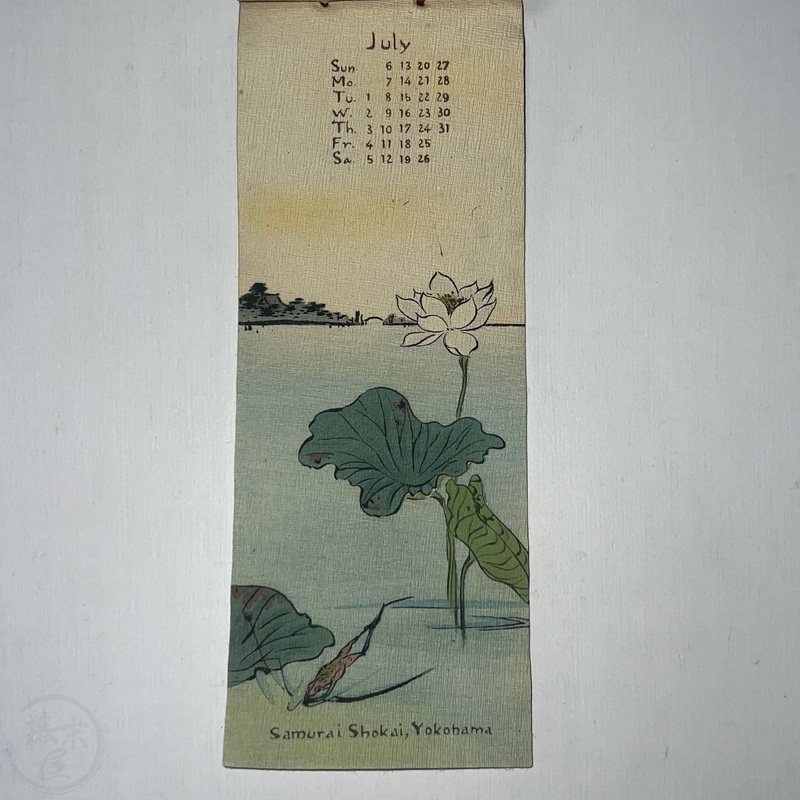 July
Sun 6 13 20 27
Mo. 7 14 21 28
Tu. 1 8 15 22 29
W. 2 9 16 23 30
Th. 3 10 17 24 31
Fr. 4 11 18 25
Sa. 5 12 19 26
Samurai Shokai, Yokohama
幕末屋